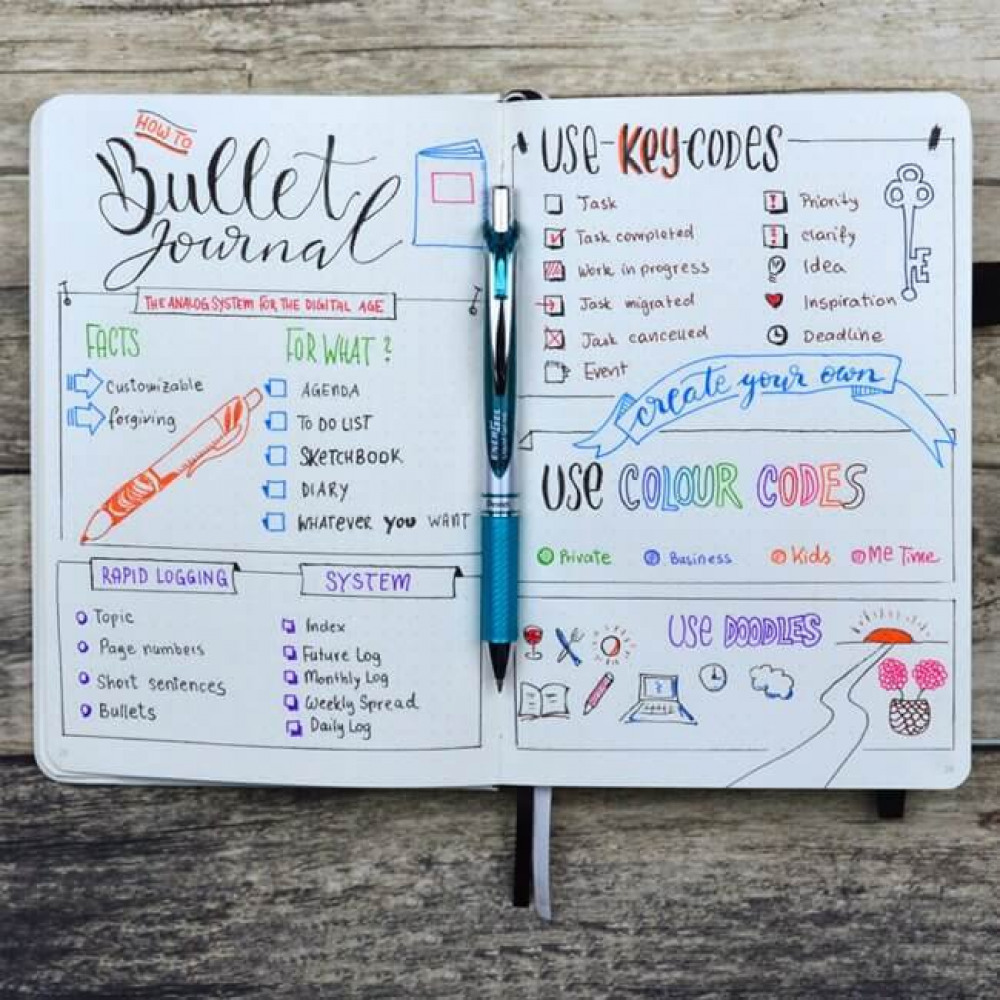 HOW TO
Bullet
Journal
THE ANALOG SYSTEM FOR THE DIGITAL AGE
FACTS
customizable
forgiving
FOR WHAT?
AGENDA
TO DO LIST
SKETCHBOOK
DIARY
WHATEVER YOU WANT
RAPID LOGGING
Topic
Page numbers
Short sentences
Bullets
SYSTEM
Index
Future Log
Monthly Log
Weekly Spread
Daily Log
ENERGEL
USE-KEY-CODES
Task
Task completed
Work in progress
Task migrated
Task cancelled
Event
Priority
clarify
Idea
Inspiration
Deadline
create your own
USE COLOUR CODES
Private
Business
Kids
Me Time
USE DOODLES